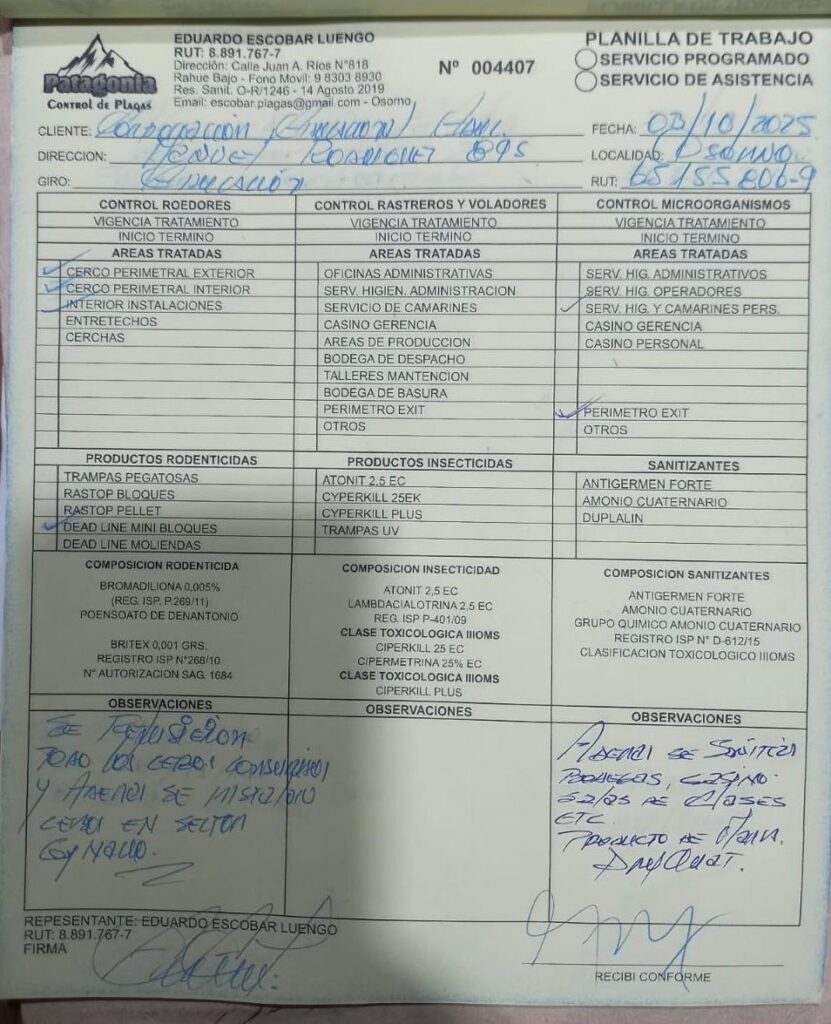 Patagonia
CONTROL DE PLAGAS
EDUARDO ESCOBAR LUENGO
RUT: 8.891.767-7
Dirección: Calle Juan A. Rios N°818
Rahue Bajo - Fono Movil: 9 8303 8930
Res. Sanit. O-R/1246 - 14 Agosto 2019
Email: escobar.plagas@gmail.com - Osorno
Nº 004407
PLANILLA DE TRABAJO
SERVICIO PROGRAMADO
SERVICIO DE ASISTENCIA
CLIENTE: Corporación
FECHA: 03/10/2025
DIRECCION: Manuel Rodriguez 895
LOCALIDAD: Osorno
GIRO: Educación
RUT: 65155806-9
CONTROL ROEDORES
VIGENCIA TRATAMIENTO
INICIO TERMINO
AREAS TRATADAS
CERCO PERIMETRAL EXTERIOR
CERCO PERIMETRAL INTERIOR
INTERIOR INSTALACIONES
ENTRETECHOS
CERCHAS
CONTROL RASTREROS Y VOLADORES
VIGENCIA TRATAMIENTO
INICIO TERMINO
AREAS TRATADAS
OFICINAS ADMINISTRATIVAS
SERV. HIGIEN. ADMINISTRACION
SERVICIO DE CAMARINES
CASINO GERENCIA
AREAS DE PRODUCCION
BODEGA DE DESPACHO
TALLERES MANTENCION
BODEGA DE BASURA
PERIMETRO EXIT
OTROS
CONTROL MICROORGANISMOS
VIGENCIA TRATAMIENTO
INICIO TERMINO
AREAS TRATADAS
SERV. HIG. ADMINISTRATIVOS
SERV. HIG. OPERADORES
SERV. HIG. Y CAMARINES PERS.
CASINO GERENCIA
CASINO PERSONAL
PERIMETRO EXIT
OTROS
PRODUCTOS RODENTICIDAS
TRAMPAS PEGATOSAS
RASTOP BLOQUES
RASTOP PELLET
DEAD LINE MINI BLOQUES
DEAD LINE MOLIENDAS
PRODUCTOS INSECTICIDAS
ATONIT 2,5 EC
CYPERKILL 25EK
CYPERKILL PLUS
TRAMPAS UV
SANITIZANTES
ANTIGERMEN FORTE
AMONIO CUATERNARIO
DUPLALIN
COMPOSICION RODENTICIDA
BROMADILIONA 0,005%
(REG. ISP. P.269/11)
POENSOATO DE DENANTONIO
BRITEX 0,001 GRS.
REGISTRO ISP N°268/10
N° AUTORIZACION SAG. 1684
COMPOSICION INSECTICIDAD
ATONIT 2,5 EC
LAMBDACIALOTRINA 2.5 EC
REG. ISP P-401/09
CLASE TOXICOLOGICA IIIOMS
CIPERKILL 25 EC
CIPERMETRINA 25% EC
CLASE TOXICOLOGICA IIIOMS
CIPERKILL PLUS
COMPOSICION SANITIZANTES
ANTIGERMEN FORTE
AMONIO CUATERNARIO
GRUPO QUIMICO AMONIO CUATERNARIO
REGISTRO ISP N° D-612/15
CLASIFICACION TOXICOLOGICO IIIOMS
OBSERVACIONES
Se
todo los cebos consumidos
y Ademas se
cebos en sector
OBSERVACIONES
OBSERVACIONES
Ademas se
Bodegas, casino
salas de clases
ETC
Producto de
REPESENTANTE: EDUARDO ESCOBAR LUENGO
RUT: 8.891.767-7
FIRMA
RECIBI CONFORME